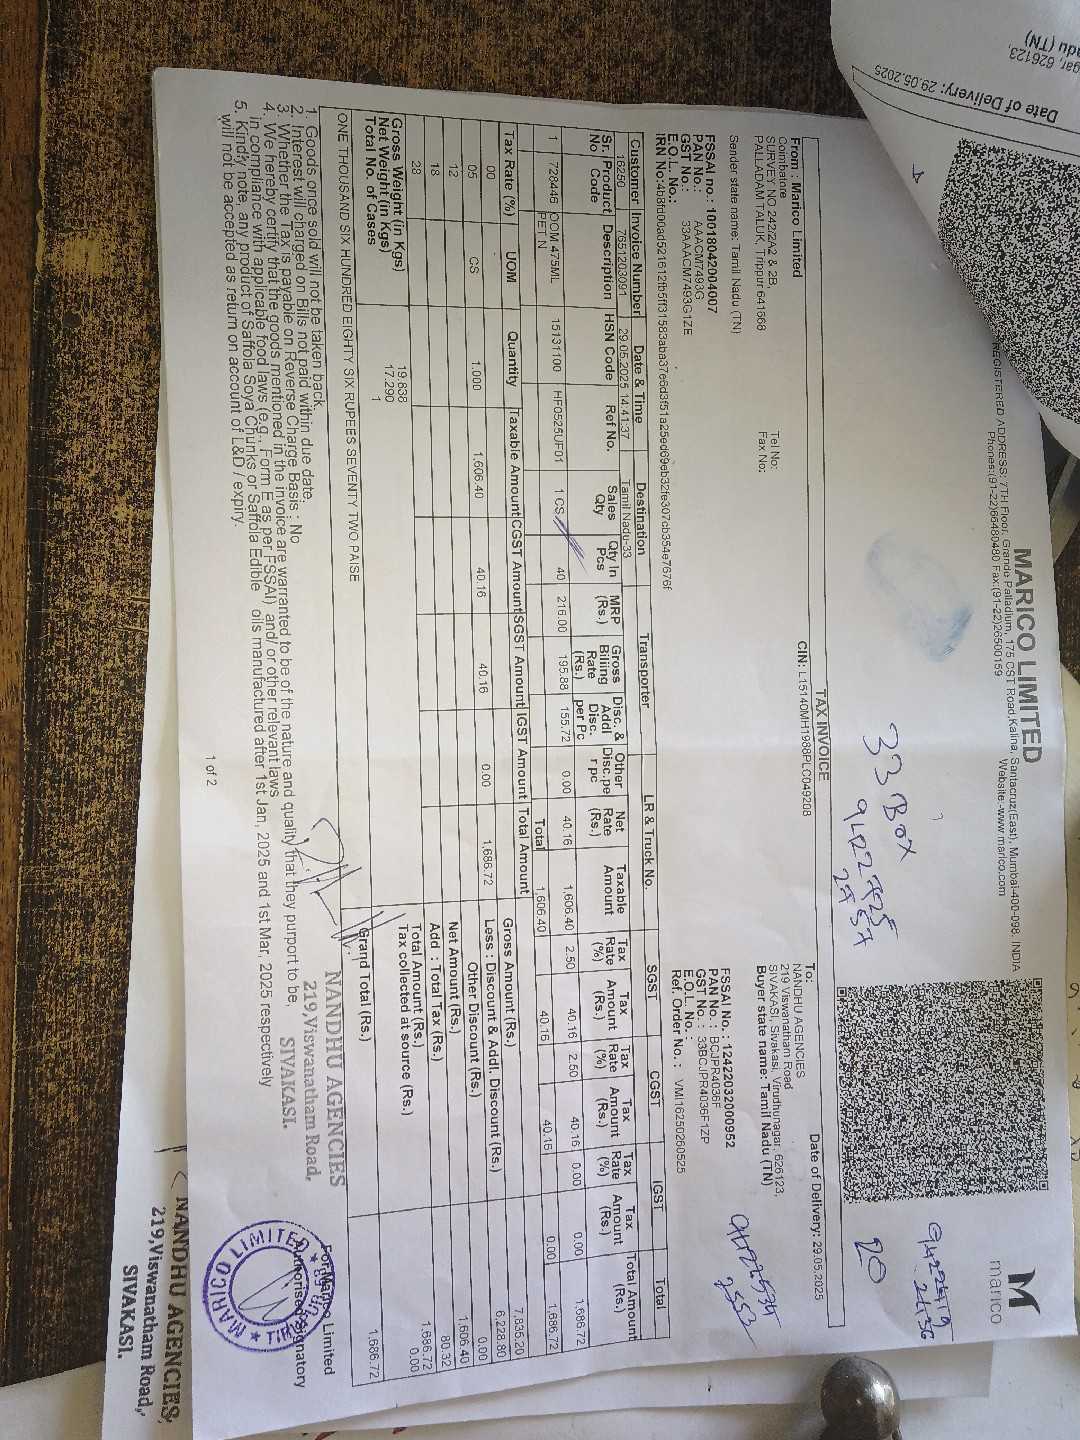 MARICO LIMITED
REGISTERED ADDRESS: 7TH Floor, Grande Palladium, 175 CST Road,Kalina, Santacruz(East), Mumbai-400-098, INDIA
Phones:(91-22)66480480 Fax:(91-22)26500159
Website:-www.marico.com
marico
33 Box
20
TAX INVOICE
Date of Delivery: 29.05.2025
CIN: L15140MH1988PLC049208
From : Marico Limited
Coimbatore
SURVEY NO.242/2A2 & 2B,
PALLADAM TALUK, Trippur 641668
Tel No:
Fax No:
Sender state name: Tamil Nadu (TN)
FSSAI no.: 10018042004007
PAN No.: AAACM7493G
GST No.: 33AAACM7493G1ZE
E.O.L. No.:
To:
NANDHU AGENCIES
219 Viswanatham Road
SIVAKASI, Sivakasi, Virudhunagar, 626123,
Buyer state name: Tamil Nadu (TN)
FSSAI No. : 12422032000952
PAN No. : BCJPR4036F
GST No. : 33BCJPR4036F1ZP
E.O.L. No. :
Ref. Order No. : VMI16250260525
Customer Invoice Number Date & Time Destination Transporter LR & Truck No. SGST CGST IGST Total
16250 7651203091 29.05.2025 14:41:37 Tamil Nadu-33
Sr. No Product Code Description HSN Code Ref No. Sales Qty Qty In Pcs MRP (Rs.) Gross Billing Rate (Rs.) Disc. & Addl Disc. per Pc Other Disc.pe r pc Net Rate (Rs.) Taxable Amount Tax Rate (%) Tax Amount (Rs.) Tax Rate (%) Tax Amount (Rs.) Tax Rate (%) Tax Amount (Rs.) Total Amount (Rs.)
1 728446 OOM 475ML PET N 15131100 HF0525UF01 1 CS 40 216.00 195.88 155.72 0.00 40.16 1,606.40 2.50 40.16 2.50 40.16 0.00 0.00 1,686.72
Total 1,606.40 40.16 40.16 0.00 1,686.72
Tax Rate (%) UOM Quantity Taxable Amount CGST Amount SGST Amount IGST Amount Total Amount
00
05 CS 1.000 1,606.40 40.16 40.16 0.00 1,686.72
12
18
28
Gross Amount (Rs.) 7,835.20
Less : Discount & Addl. Discount (Rs.) 6,228.80
Other Discount (Rs.) 0.00
Net Amount (Rs.) 1,606.40
Add : Total Tax (Rs.) 80.32
Total Amount (Rs.) 1,686.72
Tax collected at source (Rs.) 0.00
Gross Weight (in Kgs) 19.838
Net Weight (in Kgs) 17.290
Total No. of Cases 1
Grand Total (Rs.) 1,686.72
ONE THOUSAND SIX HUNDRED EIGHTY SIX RUPEES SEVENTY TWO PAISE
1. Goods once sold will not be taken back.
2. Interest will charged on Bills not paid within due date.
3. Whether the Tax is payable on Reverse Charge Basis : No
4. We hereby certify that the goods mentioned in the Invoice are warranted to be of the nature and quality that they purport to be,
in compliance with applicable food laws (e.g., Form E as per FSSAI) and/ or other relevant laws
5. Kindly note, any product of Saffola Soya Chunks or Saffola Edible oils manufactured after 1st Jan, 2025 and 1st Mar, 2025 respectively
will not be accepted as return on account of L&D / expiry.
NANDHU AGENCIES
219,Viswanatham Road,
SIVAKASI.
For Marico Limited
Authorised Signatory
MARICO LIMITED
1 of 2
NANDHU AGENCIES,
219,Viswanatham Road,
SIVAKASI.
Date of Delivery: 29.05.2025